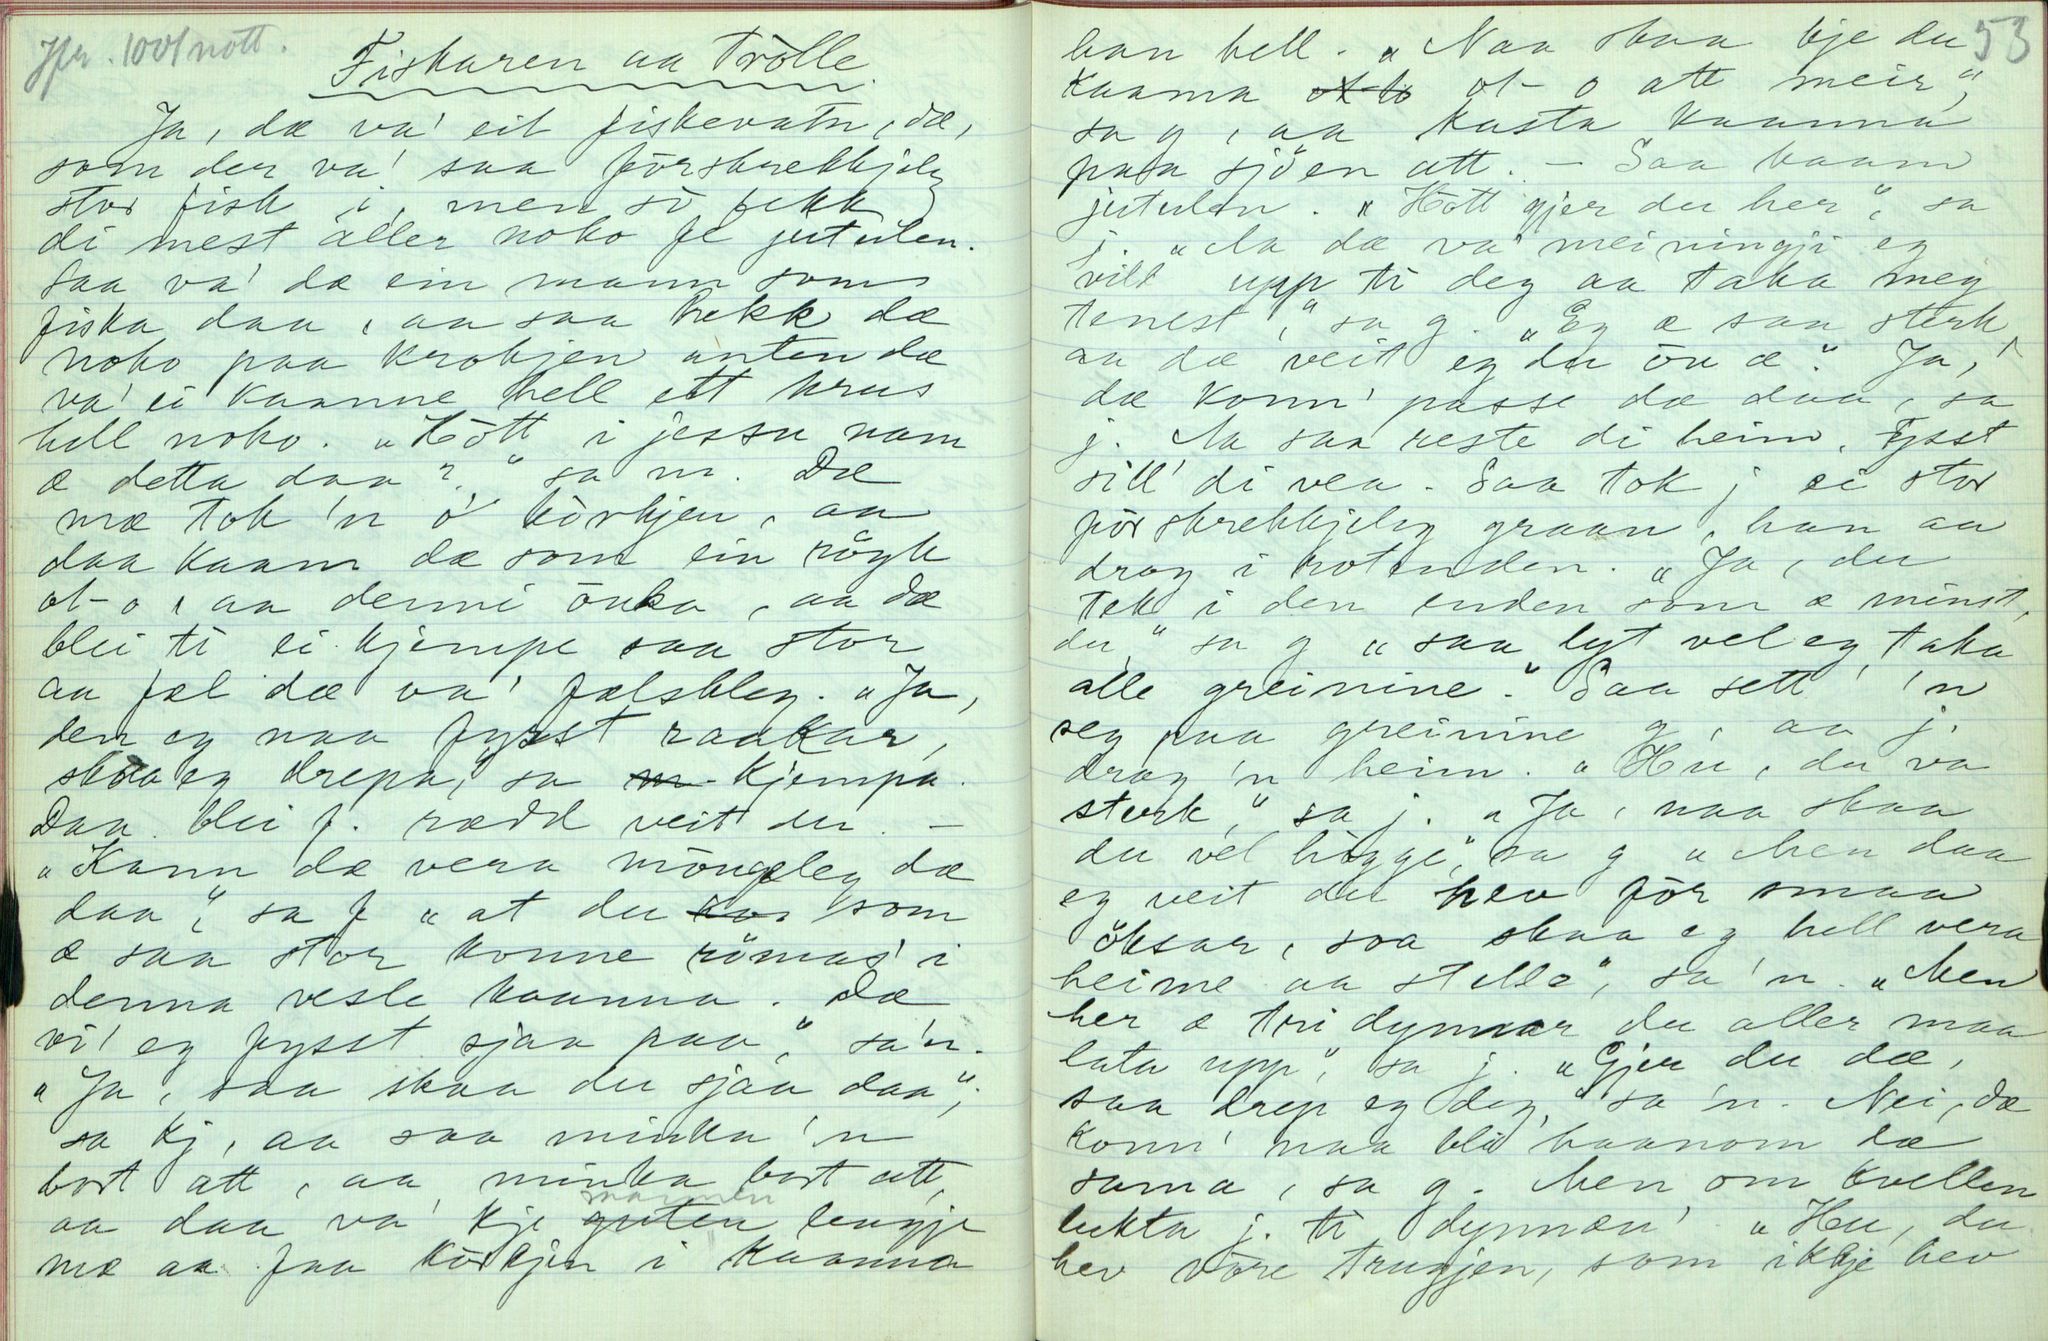 Jfr. 1001 nott.
Fiskaren aa trolle.
Ja, dæ va' eit fiskevatn, dæ,
som der va' saa förskrekkjeleg
stor fisk i, men so fekk
di mest aller noko fe jutulen.
Saa va' dæ ein mann som
fiska daa, aa saa hekk dæ
noko paa krokjen anten dæ
va' ei kaanne hell ett krus
hell noko. „Hött i jessu nam
æ detta daa?" sa m. Dæ
mæ tok 'n o' körkjen, aa
daa kaam dæ som ein röyk
ot-o, aa denni öuka, aa dæ
blei ti ei kjempe saa stor
aa fæl dæ va' fælskleg. „Ja,
den eg naa fysst raakar,
skaa eg drepa," sa m kjempa.
Daa blei f. rædd veit du. –
„Kann dæ vera möugeleg dæ
daa", sa f „at du kan som
æ saa stor konne römas' i
denna vesle kaanna. Dæ
vi' eg fysst sjaa paa," sa'n.
„Ja, saa skaa du sjaa daa",
sa kj, aa saa minka 'n
bort att, aa minka bort att,
aa daa va' kje guten mannen lengje
mæ aa faa körkjen i kaanna
53
han hell. „Naa skaa kje du
kaama ot o ot-o att meir",
sa g, aa kasta kaanna
paa sjöen att. – Saa kaam
jutulen. „Hött gjer du her", sa
j. „Aa dæ va' meiningji eg
vill upp ti deg aa taka meg
tenest", sa g. „Eg æ saa sterk
aa dæ veit eg du öu æ". Ja,
dæ konn' passe dæ daa, sa
j. Aa saa reste di heim. Fysst
sill' di vea. Saa tok j ei stor
förskrekkjeleg graan, han aa
drog i rotenden. „Ja, du
tek i den enden som æ minst,
du," sa g „saa lyt vel eg taka
alle greinine". Saa sett' 'n
seg paa greinine g, aa j.
drog 'n heim. „Hu, du va
sterk," sa j. „Ja, naa skaa
du vel högge", sa g „Men daa
eg veit du hev för smaa
öksar, soa skaa eg hell vera
heime aa stelle", sa 'n. „Men
her æ tri dynnar du aller maa
lata upp", sa j. „Gjer du dæ,
saa drep eg deg," sa 'n. Nei, dæ
konn' naa bli haanom dæ
sama, sa g. Men om kvellen
lukta j. ti dynnæn'. „Hu, du
hev vöre trugjen, som ikkje hev